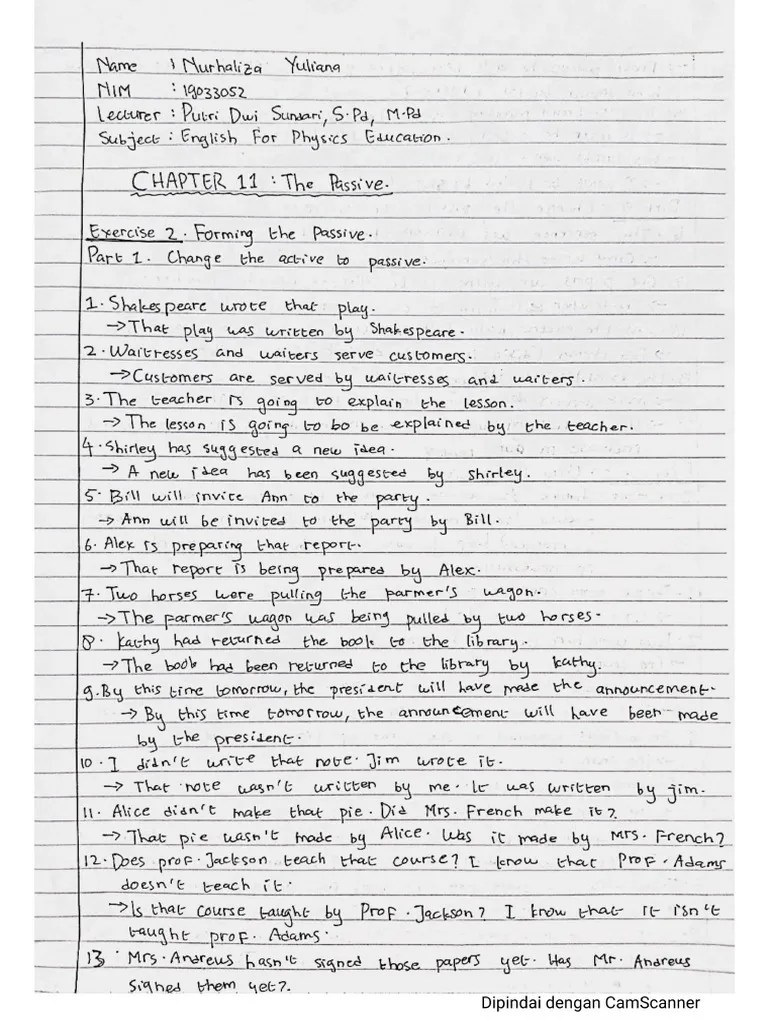 Name : Nurhaliza Yuliana
NIM : 19033052
Lecturer : Putri Dwi Sundari, S.Pd, M.Pd
Subject : English For Physics Education.
CHAPTER 11 : The Passive.
Exercise 2. Forming the Passive.
Part 1. Change the active to passive.
1. Shakespeare wrote that play.
→ That play was written by Shakespeare.
2. Waitresses and waiters serve customers.
→ Customers are served by waitresses and waiters.
3. The teacher is going to explain the lesson.
→ The lesson is going to bo be explained by the teacher.
4. Shirley has suggested a new idea.
→ A new idea has been suggested by shirley.
5. Bill will invite Ann to the party.
→ Ann will be invited to the party by Bill.
6. Alex is preparing that report.
→ That report is being prepared by Alex.
7. Two horses were pulling the parmer's wagon.
→ The parmer's wagon was being pulled by two horses.
8. Kathy had returned the book to the library.
→ The book had been returned to the library by kathy.
9. By this time tomorrow, the president will have made the announcement.
→ By this time tomorrow, the announcement will have been made
by the president.
10. I didn't write that note. Jim wrote it.
→ That note wasn't written by me. It was written by jim.
11. Alice didn't make that pie. Did Mrs. French make it?
→ That pie wasn't made by Alice. Was it made by Mrs. French?
12. Does prof. Jackson teach that course? I know that Prof. Adams
doesn't teach it.
→ Is that course taught by Prof. Jackson? I know that it isn't
taught prof. Adams.
13. Mrs. Andrews hasn't signed those papers yet. Has Mr. Andrews
signed them yet?.
Dipindai dengan CamScanner